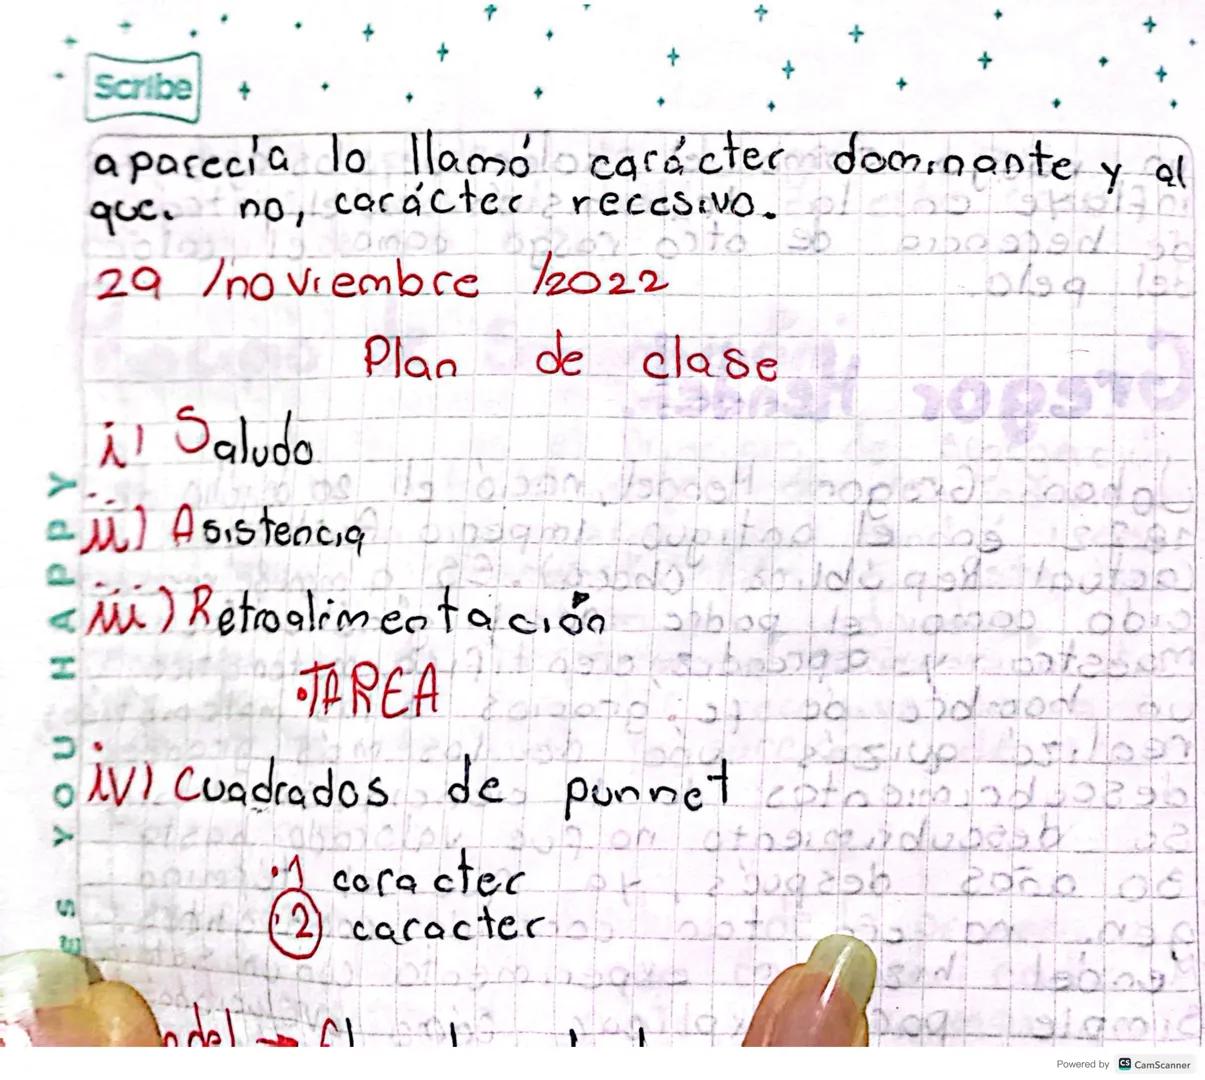 Scribe
aparecía lo llamó carácter dominante y al
que no, carácter recesivo.
29 /noviembre /2022
Plan de clase
i) Saludo
ii) Asistencia
iii) Retroalimentación
•TAREA
iv) Cuadrados de punnet
•1 caracter
•2 caracter
YOU HAPPY
Powered by CS CamScanner